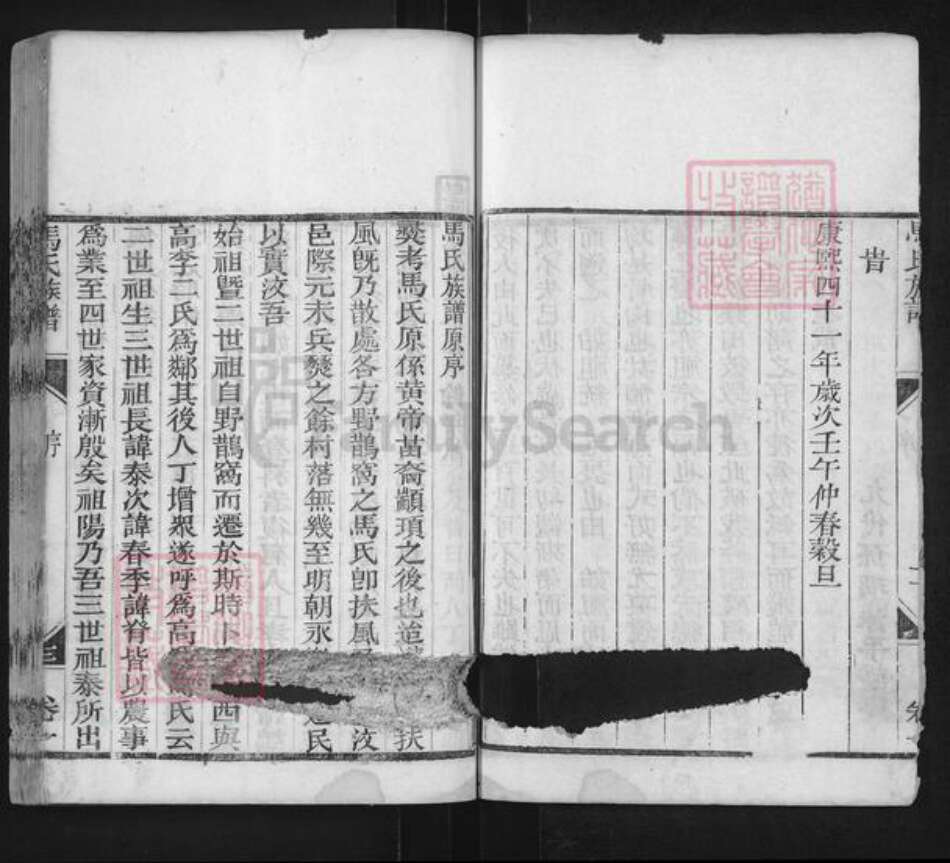 馬氏族譜
昔
康熙四十一年歲次壬午仲春穀旦
馬氏族譜原序
奱考馬氏原係黄帝苗裔顓頊之後也迨 扶
風既乃散處各方野鵲窩之馬氏卽扶風 汶
邑際元末兵燹之餘村落無幾至明朝永 民
以實汶吾
始祖暨二世祖自野鵲窩而遷於斯時卜 西與
高李二氏爲鄰其後人丁增衆遂呼爲高 氏云
二世祖生三世祖長諱泰次諱春季諱脊皆以農事
爲業至四世家資漸殷矣祖陽乃吾三世祖泰所出
馬氏族譜
序
三
卷一
FamilySearch